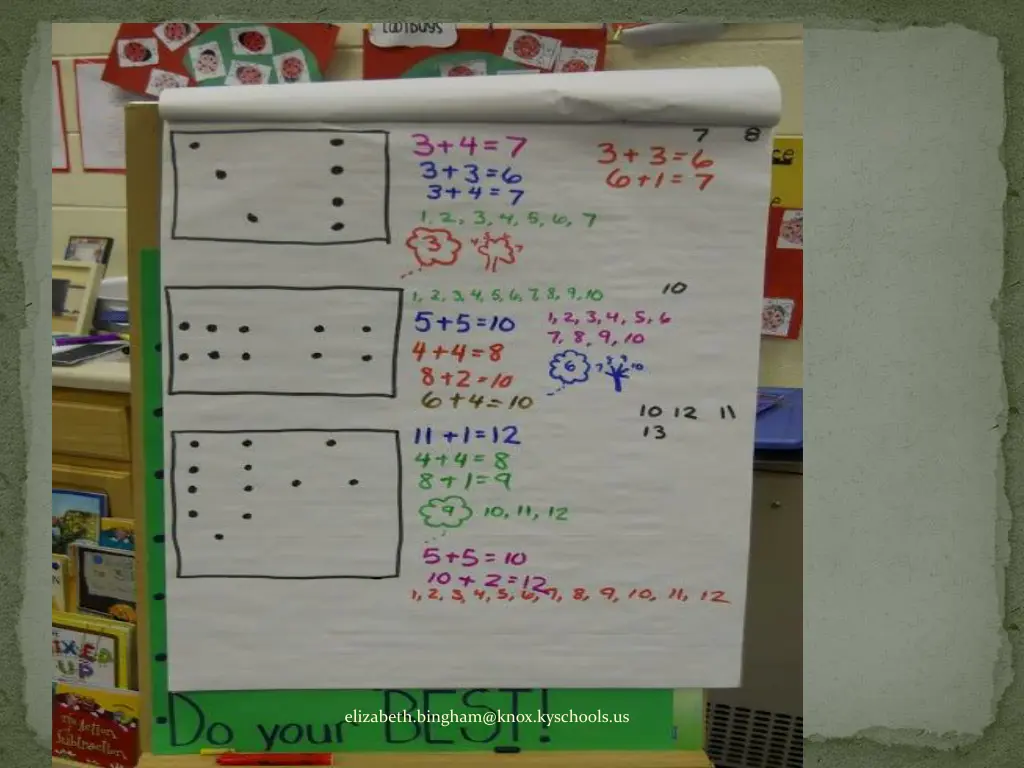 LADYBUGS
7 8
3+4=7
3+3=6
3+3=6
6+1=7
3+4=7
1, 2, 3, 4, 5, 6, 7
3
10
1, 2, 3, 4, 5, 6, 7, 8, 9, 10
5+5=10
1, 2, 3, 4, 5, 6
7, 8, 9, 10
4+4=8
6 7 8 9 10
8+2=10
6+4=10
10 12 11
13
11+1=12
4+4=8
8+1=9
9 10, 11, 12
5+5=10
10+2=12
1, 2, 3, 4, 5, 6, 7, 8, 9, 10, 11, 12
MIXED
UP
The Action
of
Subtraction
Do your BEST!
elizabeth.bingham@knox.kyschools.us